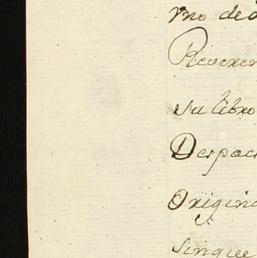 mo de
Reveren
su libro
Despac
Origina
sinque